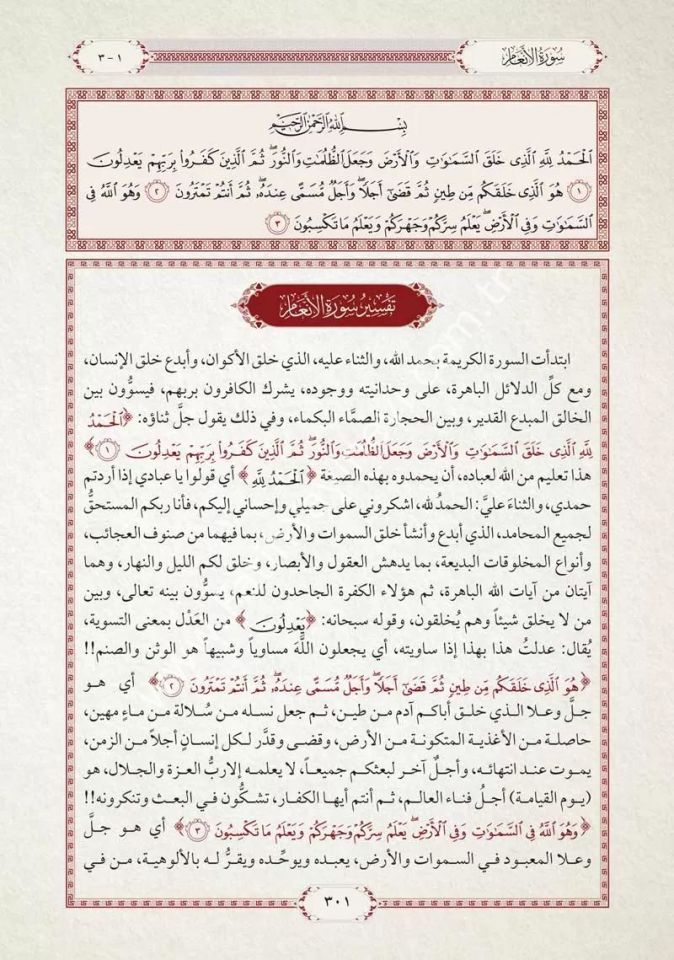 سُورَةُ الأَنعَام
١ - ٣
بِسْمِ ٱللَّهِ ٱلرَّحْمَٰنِ ٱلرَّحِيمِ
ٱلْحَمْدُ لِلَّهِ ٱلَّذِى خَلَقَ ٱلسَّمَٰوَٰتِ وَٱلْأَرْضَ وَجَعَلَ ٱلظُّلُمَٰتِ وَٱلنُّورَ ۖ ثُمَّ ٱلَّذِينَ كَفَرُوا۟ بِرَبِّهِمْ يَعْدِلُونَ
١ هُوَ ٱلَّذِى خَلَقَكُم مِّن طِينٍ ثُمَّ قَضَىٰٓ أَجَلًا ۖ وَأَجَلٌ مُّسَمًّى عِندَهُۥ ۖ ثُمَّ أَنتُمْ تَمْتَرُونَ ٢ وَهُوَ ٱللَّهُ فِى
ٱلسَّمَٰوَٰتِ وَفِى ٱلْأَرْضِ ۖ يَعْلَمُ سِرَّكُمْ وَجَهْرَكُمْ وَيَعْلَمُ مَا تَكْسِبُونَ ٣
تَفْسِيرُ سُورَةِ الأَنعَام
ابتدأت السورة الكريمة بحمد الله، والثناء عليه، الذي خلق الأكوان، وأبدع خلق الإنسان،
ومع كلِّ الدلائل الباهرة، على وحدانيته ووجوده، يشرك الكافرون بربهم، فيسوُّون بين
الخالق المبدع القدير، وبين الحجارة الصمَّاء البكماء، وفي ذلك يقول جلَّ ثناؤه: ﴿ٱلْحَمْدُ
لِلَّهِ ٱلَّذِى خَلَقَ ٱلسَّمَٰوَٰتِ وَٱلْأَرْضَ وَجَعَلَ ٱلظُّلُمَٰتِ وَٱلنُّورَ ۖ ثُمَّ ٱلَّذِينَ كَفَرُوا۟ بِرَبِّهِمْ يَعْدِلُونَ ١﴾
هذا تعليم من الله لعباده، أن يحمدوه بهذه الصيغة ﴿ٱلْحَمْدُ لِلَّهِ﴾ أي قولوا يا عبادي إذا أردتم
حمدي، والثناءَ عليَّ: الحمدُ لله، اشكروني على جميلي وإحساني إليكم، فأنا ربكم المستحقُّ
لجميع المحامد، الذي أبدع وأنشأ خلق السموات والأرض، بما فيهما من صنوف العجائب،
وأنواع المخلوقات البديعة، بما يدهش العقول والأبصار، وخلق لكم الليل والنهار، وهما
آيتان من آيات الله الباهرة، ثم هؤلاء الكفرة الجاحدون للنعم، يسوُّون بينه تعالى، وبين
من لا يخلق شيئاً وهم يُخلقون، وقوله سبحانه: ﴿يَعْدِلُونَ﴾ من العَدْل بمعنى التسوية،
يُقال: عدلتُ هذا بهذا إذا ساويته، أي يجعلون اللَّهَ مساوياً وشبيهاً هو الوثن والصنم!!
﴿هُوَ ٱلَّذِى خَلَقَكُم مِّن طِينٍ ثُمَّ قَضَىٰٓ أَجَلًا ۖ وَأَجَلٌ مُّسَمًّى عِندَهُۥ ۖ ثُمَّ أَنتُمْ تَمْتَرُونَ ٢﴾ أي هو
جلَّ وعلا الذي خلق أباكم آدم من طين، ثم جعل نسله من سُلالة من ماءٍ مهين،
حاصلة من الأغذية المتكونة من الأرض، وقضى وقدَّر لكل إنسانٍ أجلاً من الزمن،
يموت عند انتهائه، وأجلٌ آخر لبعثكم جميعاً، لا يعلمه إلا ربُّ العزة والجلال، هو
(يوم القيامة) أجلُ فناء العالم، ثم أنتم أيها الكفار، تشكُّون في البعث وتنكرونه!!
﴿وَهُوَ ٱللَّهُ فِى ٱلسَّمَٰوَٰتِ وَفِى ٱلْأَرْضِ ۖ يَعْلَمُ سِرَّكُمْ وَجَهْرَكُمْ وَيَعْلَمُ مَا تَكْسِبُونَ ٣﴾ أي هو جلَّ
وعلا المعبود في السموات والأرض، يعبده ويوحِّده ويقرُّ له بالألوهية، من في
٣٠١